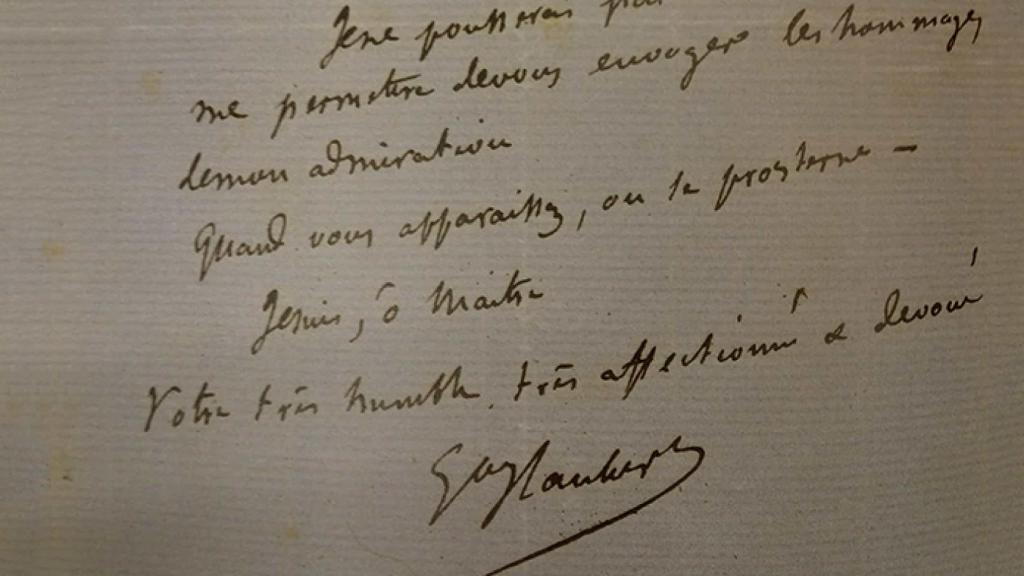 Je ne pousserai pas
me permettre de vous envoyer les hommages
de mon admiration
Quand vous apparaissez, on se prosterne –
Je suis, ô Maître
Votre très humble, très affectionné & dévoué
GveFlaubert